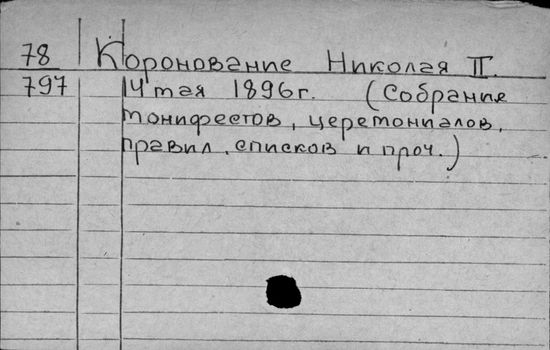 78 Коронование Николая II.
797 14 мая 1896 г. (Собрание
монифестов, церемониалов,
правил, списков и проч.)